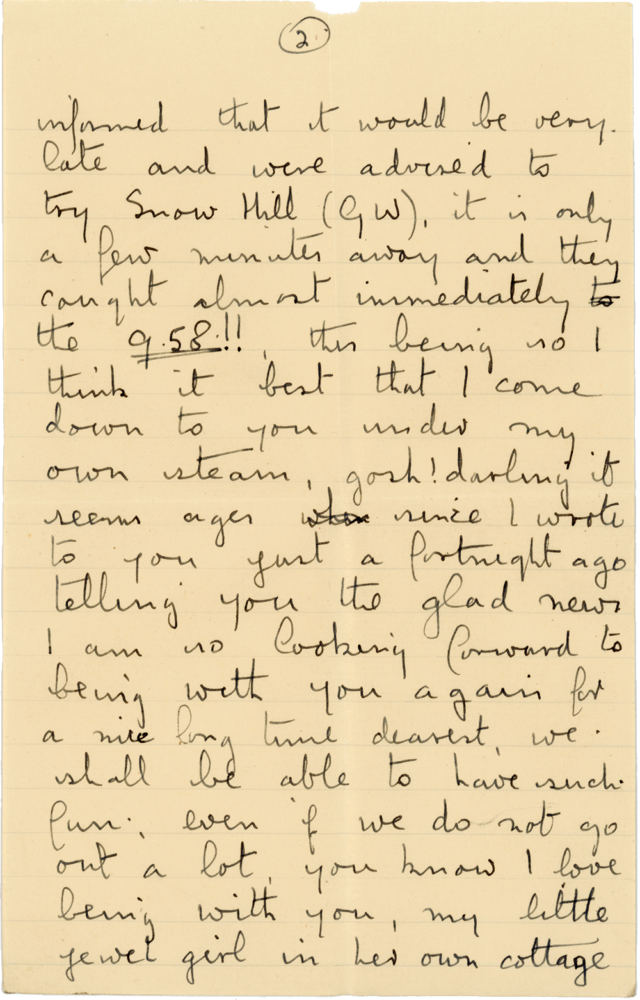 2
informed that it would be very
late and were advised to
try Snow Hill (G W), it is only
a few minutes away and they
caught almost immediately to
the 9.58!!, this being so I
think it best that I come
down to you under my
own steam, gosh! darling it
seems ages when since I wrote
to you just a fortnight ago
telling you the glad news
I am so looking forward to
being with you again for
a nice long time dearest, we
shall be able to have such
fun, even if we do not go
out a lot, you know I love
being with you, my little
jewel girl in her own cottage